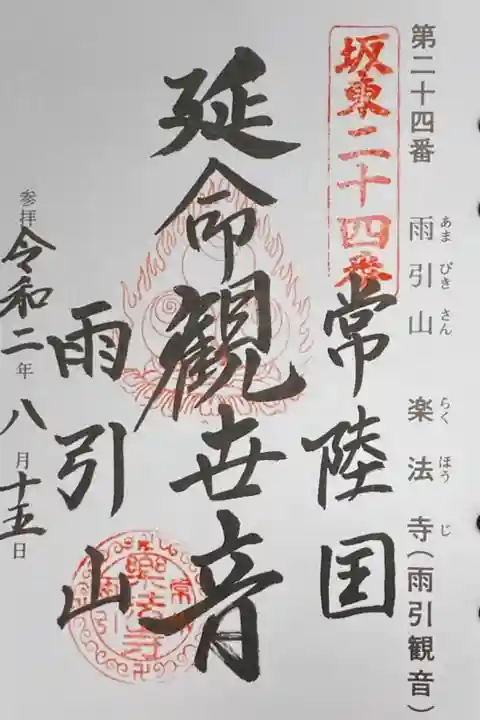 第二十四番 雨引山 楽法寺(雨引観音)
あまびきさん らくほうじ
坂東二十四番
常陸国
延命観世音
雨引山
常
雨引
楽法寺
参拝 令和二年八月十五日